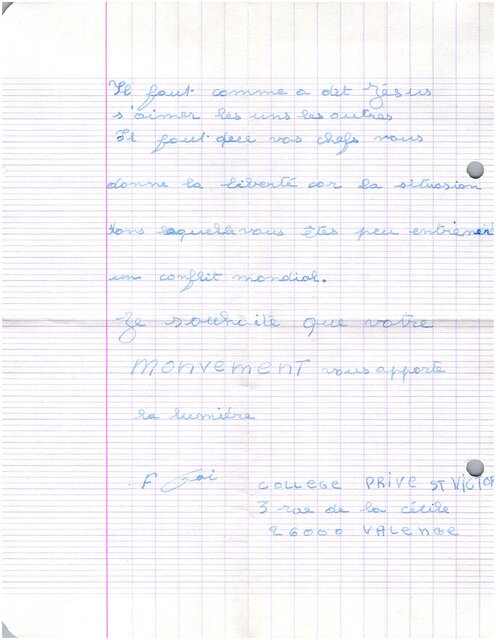 Il faut comme a dit Jésus
s'aimer les uns les autres
Il faut que vos chefs vous
donne la liberté car la situasion
dans laquelle vous êtes peu entrienent
un conflit mondial.
Je souhaite que votre
MONVEMENT vous apporte
la lumiére
F
COLLEGE PRIVE ST VICTOR
3 rue de la cécile
26000 VALENCE